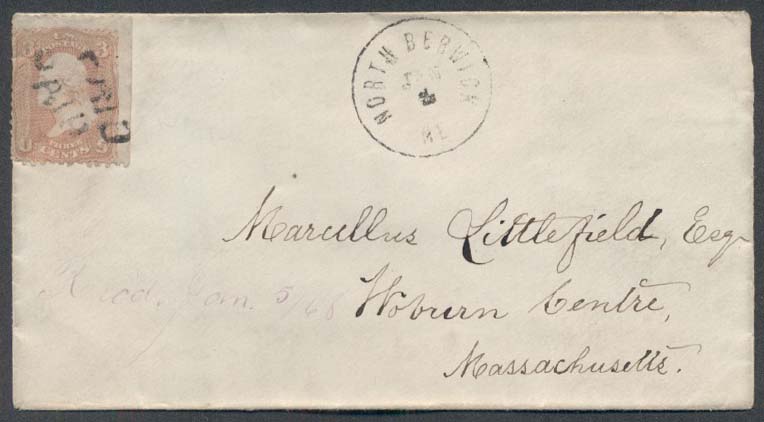 3 3
PAID
PAID
U THREE S
CENTS
NORTH BERWICK
JAN
4
ME
Marcellus Littlefield, Esq.
Recd. Jan. 5/68
Woburn Centre,
Massachusetts.